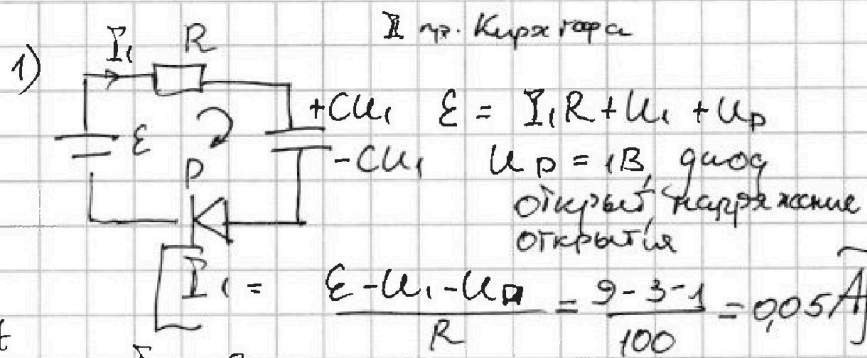 II пр. Кирхгофа
1) I₁ R
+CU₁ ε = I₁R + U₁ + U_D
ε -CU₁ U_D = 1В, диод
D открыт, напряжение
открытия
I₁ = (ε - U₁ - U_D)/R = (9 - 3 - 1)/100 = 0,05 А